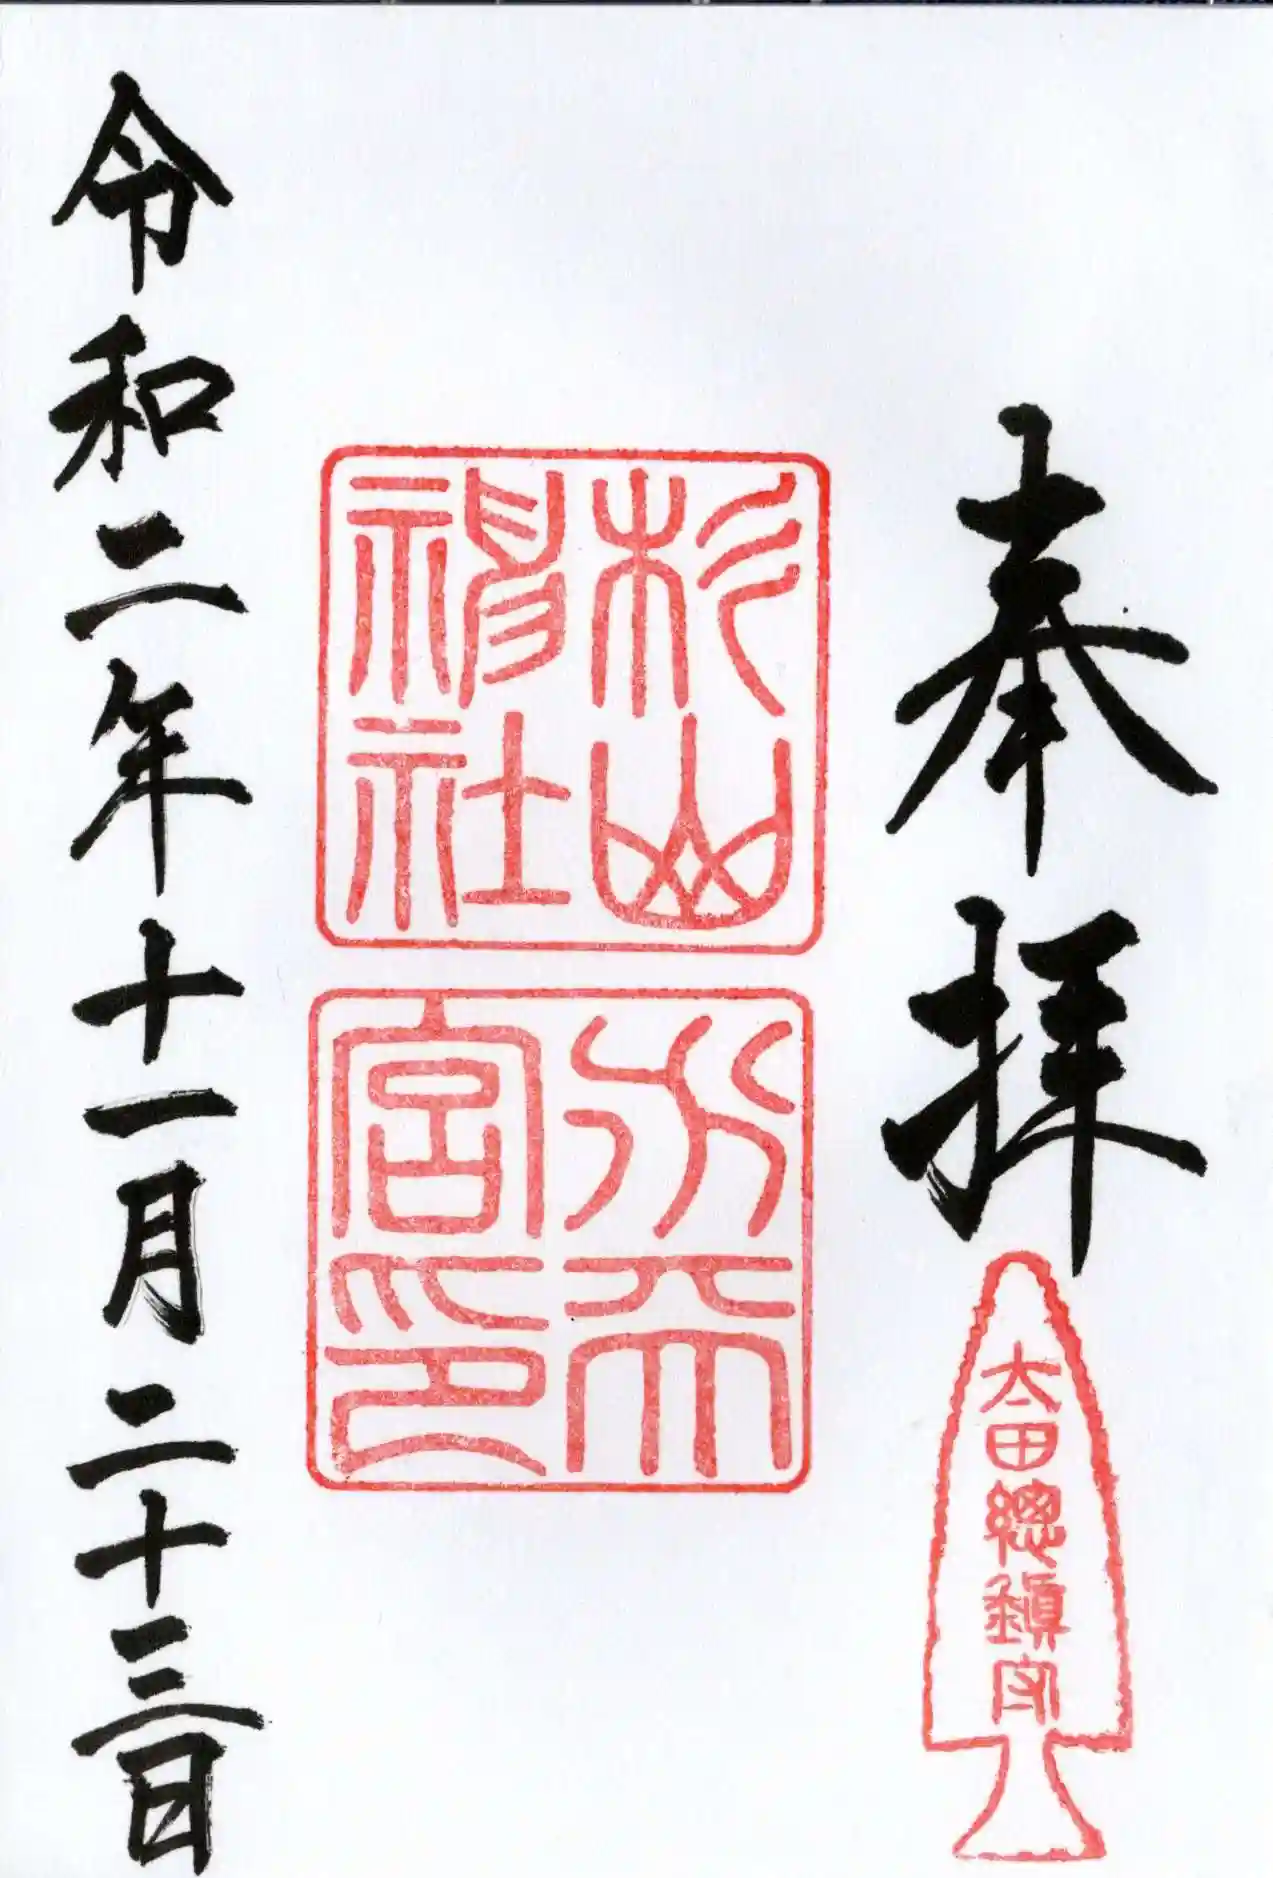 奉拝
太田總鎮守
杉山
神社
水天
宮印
令和二年十一月二十三日